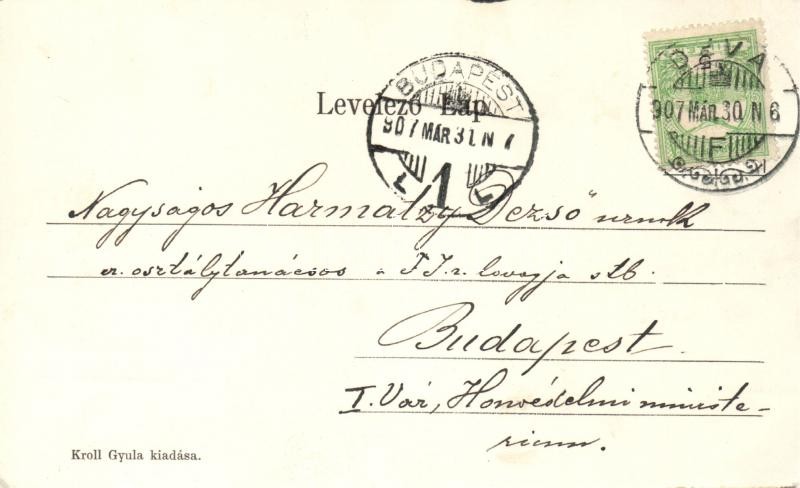 DÉVA
907 MÁR. 30. N 6
F
BUDAPEST
907 MÁR 31. N 7
1
Levelező Lap.
Nagyságos Harmatzy Dezső urnak
er. osztálytanácsos a F J. r. lovagja stb.
Budapest.
I. Vár, Honvédelmi ministe-
rium.
Kroll Gyula kiadása.